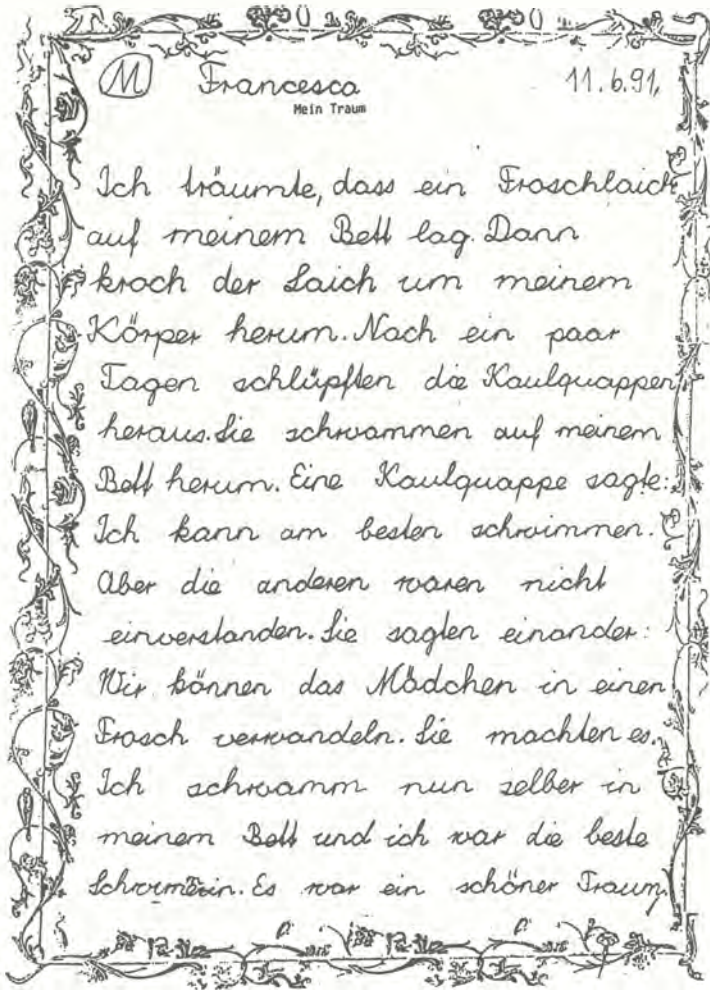 M Francesca 11.6.91.
Mein Traum
Ich träumte, dass ein Froschlaich
auf meinem Bett lag. Dann
kroch der Laich um meinem
Körper herum. Nach ein paar
Tagen schlüpften die Kaulquappen
heraus. Sie schwammen auf meinem
Bett herum. Eine Kaulquappe sagte:
Ich kann am besten schwimmen.
Aber die anderen waren nicht
einverstanden. Sie sagten einander:
Wir können das Mädchen in einen
Frosch verwandeln. Sie machten es.
Ich schwamm nun selber in
meinem Bett und ich war die beste
Es war ein schöner Traum.